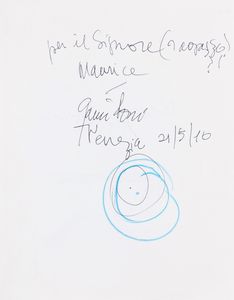 per il Signore (
??
Maurice
Venezia 21/5/10